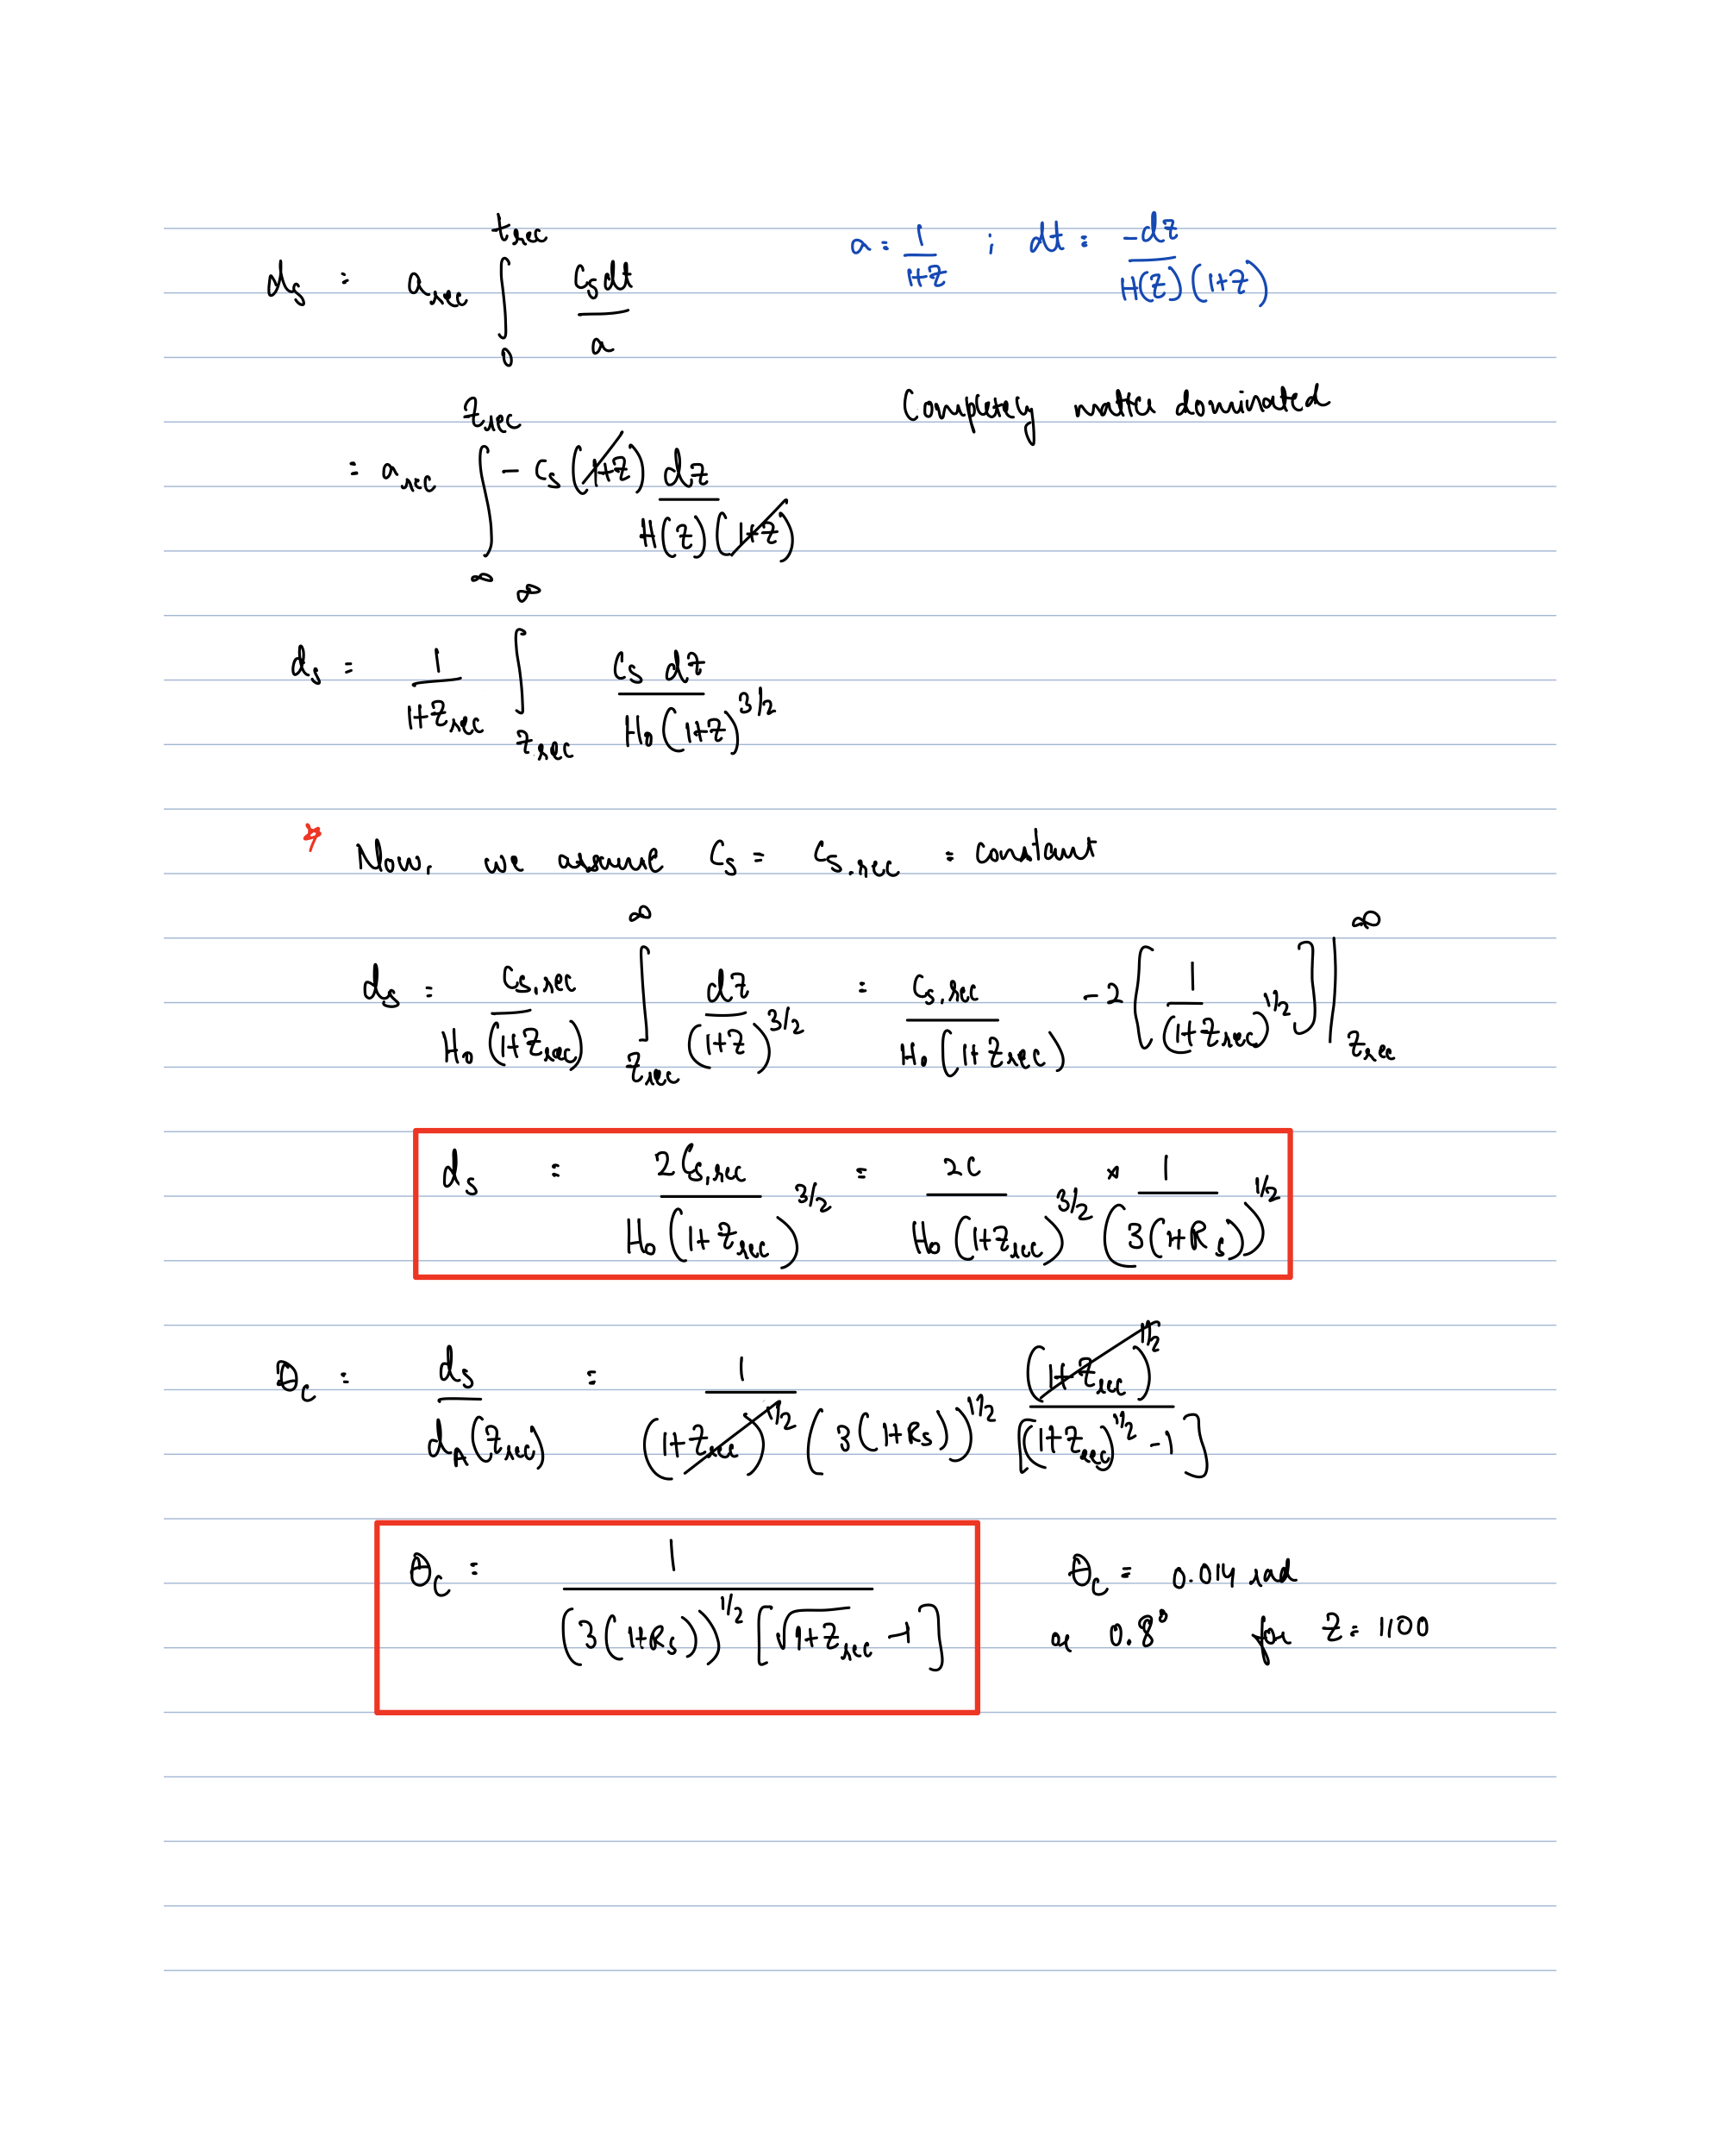 d_s = a_rec ∫_0^{t_rec} c_s dt / a        a = 1/(1+z) ; dt = -dz / (H(z)(1+z))
Completely matter dominated
= a_rec ∫_∞^{z_rec} - c_s (1+z) dz / (H(z)(1+z))
d_s = 1/(1+z_rec) ∫_{z_rec}^∞ c_s dz / (H_0(1+z)^{3/2})
* Now, we assume c_s = c_{s,rec} = constant
d_s = c_{s,rec} / (H_0(1+z_rec)) ∫_{z_rec}^∞ dz / (1+z)^{3/2} = c_{s,rec} / (H_0(1+z_rec)) -2[1/(1+z_rec)^{1/2}]|_{z_rec}^∞
d_s = 2c_{s,rec} / (H_0(1+z_rec)^{3/2}) = 2c / (H_0(1+z_rec)^{3/2}) × 1/(3(1+R_s))^{1/2}
θ_c = d_s / d_A(z_rec) = 1 / ((1+z_rec)^{1/2} (3(1+R_s))^{1/2}) (1+z_rec)^{1/2} / [(1+z_rec)^{1/2} - 1]
θ_c = 1 / ((3(1+R_s))^{1/2} [√(1+z_rec) - 1])        θ_c = 0.014 rad
or 0.8° for z = 1100